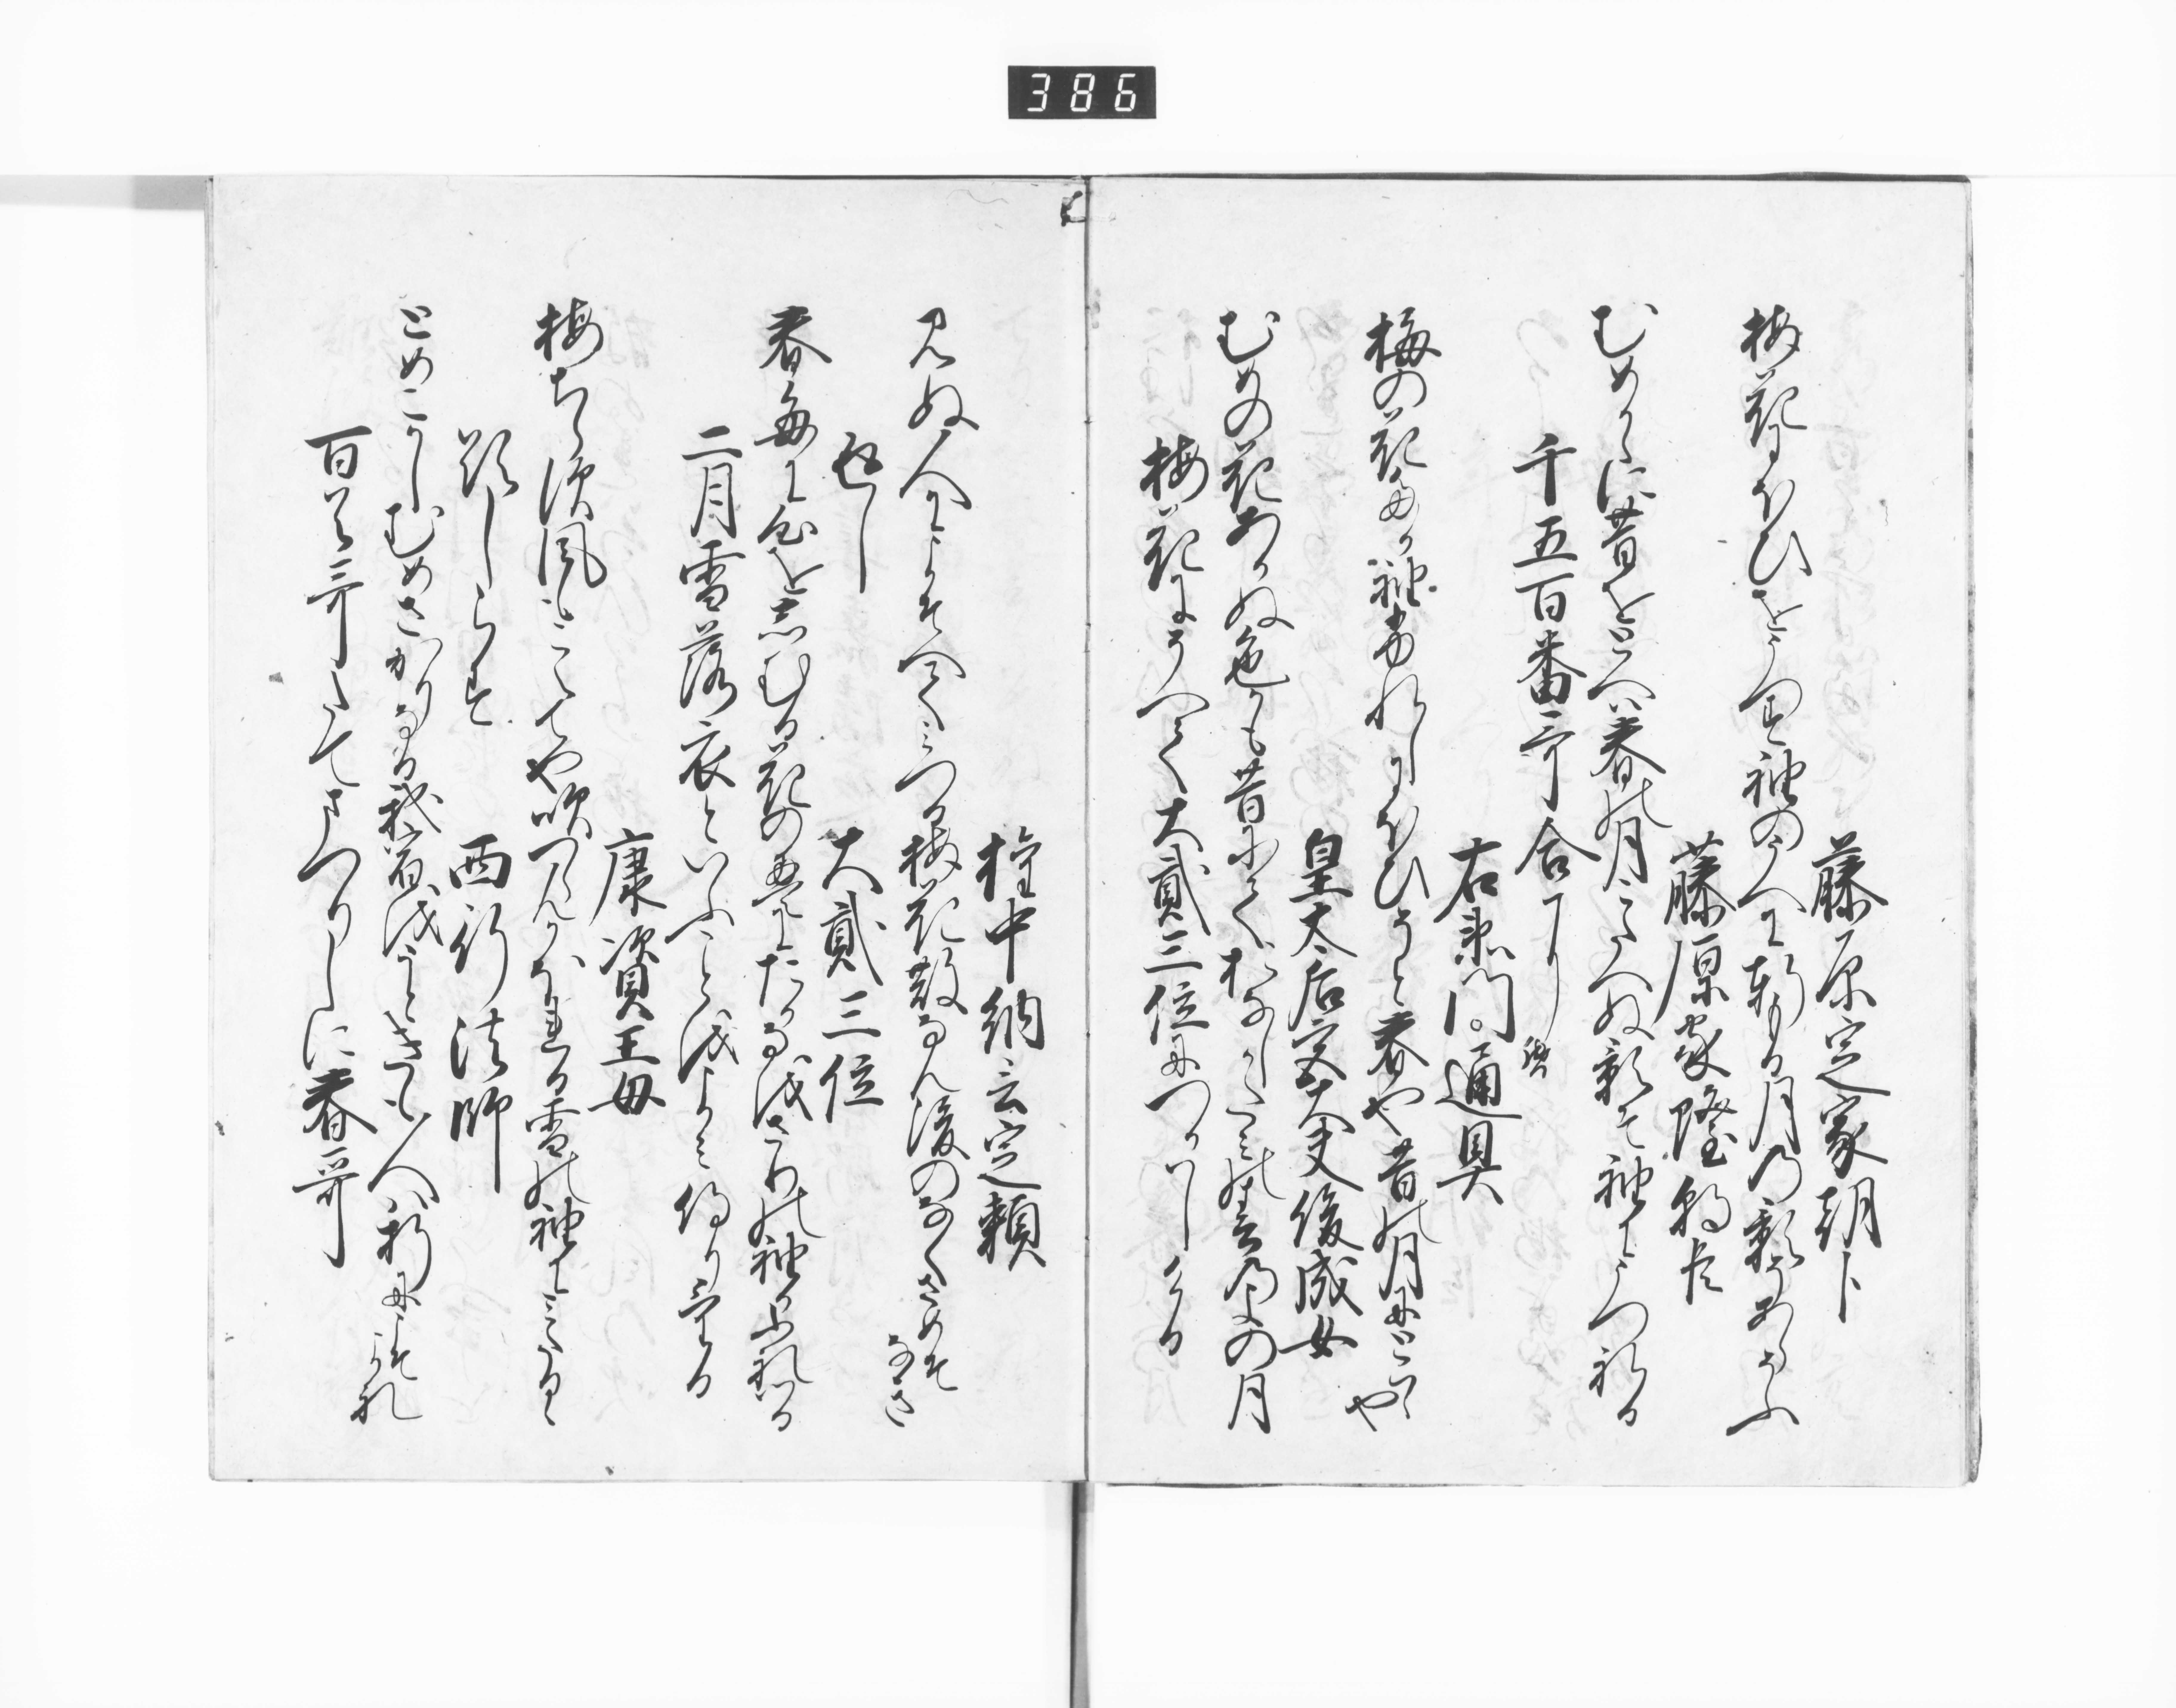 386
藤原定家朝卜
梅花にほひをうつす袖のうへに軒もる月の影そあらそふ
藤原家隆朝臣
むめかゝに昔をとへは春の月こたへぬ影そ袖にうつれる
千五百番哥合に
右衛門督通具
梅の花たか袖ふれしにほひそと春や昔の月にとはゝや
皇太后宮大夫俊成女
むめの花あかぬ色かも昔にておなしかたみの春のよの月
梅花にそへて大貳三位につかはしける
権中納言定頼
みぬ人によそへてみつる梅花散なん後のなくさめそなき
返し
大貳三位
春毎に心をしむる花のえにたかなをさりの袖かふれつる
二月雪落衣といふことをよみ侍りける
康資王母
梅ちらす風もこえてや吹つらんかほれる雪の袖にみたるゝ
題しらす
西行法師
とめこかしむめさかりなる我宿をうときも人は折にこそよれ
百首哥たてまつりしに春哥